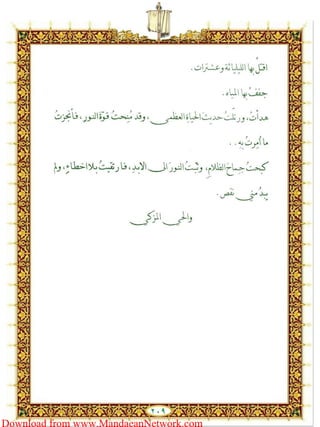 اقتلُ بها الليليانة وعشترات.
جففتُ بها المياه.
هدأتُ، ورتّلتُ حديث الحياة العظمى، وقد مُنِحتُ قوّة النور، فأنجزتُ
ما أُمِرتُ بِهِ..
كبحتُ جماحَ الظلامِ، وثبّتُ النور الى الابدِ، فارتقيتُ بلا اخطاءٍ، ولم
يبدُ منّي نقص.
والحي المزكّي
٢٠٩
Download from www.MandaeanNetwork.com